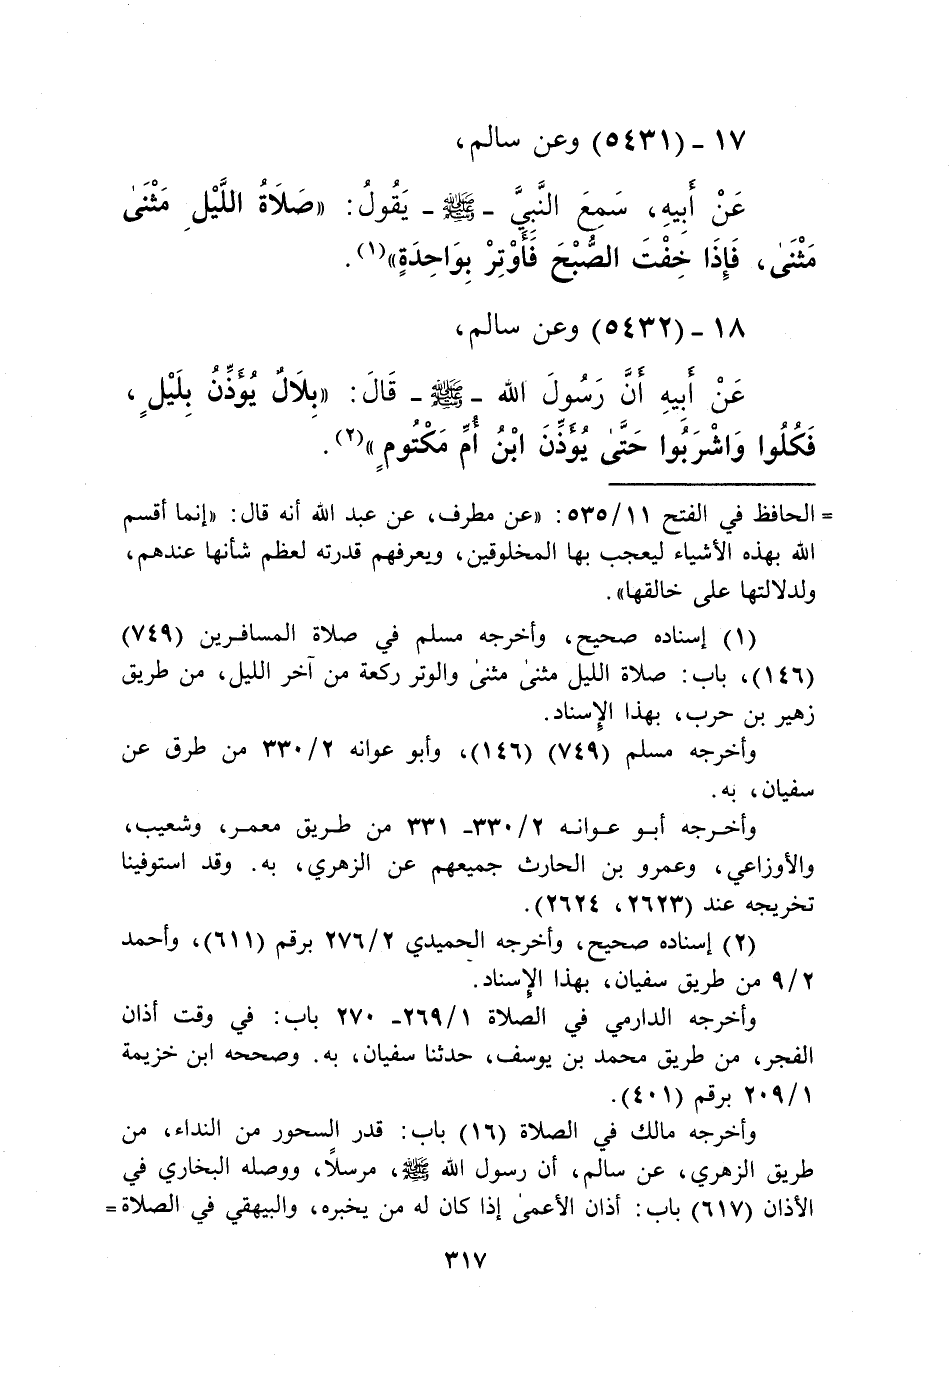 ١٧ - (٥٤٣١) وعن سالم،
عَنْ أَبِيهِ، سَمِعَ النَّبِيَّ - ﷺ - يَقُولُ: «صَلَاةُ اللَّيْلِ مَثْنَىٰ
مَثْنَىٰ، فَإِذَا خِفْتَ الصُّبْحَ فَأَوْتِرْ بِوَاحِدَةٍ»(١).
١٨ - (٥٤٣٢) وعن سالم،
عَنْ أَبِيهِ أَنَّ رَسُولَ الله - ﷺ - قَالَ: «بِلَالٌ يُؤَذِّنُ بِلَيْلٍ،
فَكُلُوا وَاشْرَبُوا حَتَّىٰ يُؤَذِّنَ ابْنُ أُمِّ مَكْتُومٍ»(٢).
= الحافظ في الفتح ٥٣٥/١١: «عن مطرف، عن عبد الله أنه قال: «إنما أقسم
الله بهذه الأشياء ليعجب بها المخلوقين، ويعرفهم قدرته لعظم شأنها عندهم،
ولدلالتها على خالقها».
(١) إسناده صحيح، وأخرجه مسلم في صلاة المسافرين (٧٤٩)
(١٤٦)، باب: صلاة الليل مثنىٰ مثنىٰ والوتر ركعة من آخر الليل، من طريق
زهير بن حرب، بهذا الإسناد.
وأخرجه مسلم (٧٤٩) (١٤٦)، وأبو عوانه ٣٣٠/٢ من طرق عن
سفيان، به.
وأخرجه أبو عوانه ٣٣٠/٢- ٣٣١ من طريق معمر، وشعيب،
والأوزاعي، وعمرو بن الحارث جميعهم عن الزهري، به. وقد استوفينا
تخريجه عند (٢٦٢٣، ٢٦٢٤).
(٢) إسناده صحيح، وأخرجه الحميدي ٢٧٦/٢ برقم (٦١١)، وأحمد
٩/٢ من طريق سفيان، بهذا الإسناد.
وأخرجه الدارمي في الصلاة ٢٦٩/١- ٢٧٠ باب: في وقت أذان
الفجر، من طريق محمد بن يوسف، حدثنا سفيان، به. وصححه ابن خزيمة
٢٠٩/١ برقم (٤٠١).
وأخرجه مالك في الصلاة (١٦) باب: قدر السحور من النداء، من
طريق الزهري، عن سالم، أن رسول الله ﷺ، مرسلًا، ووصله البخاري في
الأذان (٦١٧) باب: أذان الأعمىٰ إذا كان له من يخبره، والبيهقي في الصلاة =
٣١٧